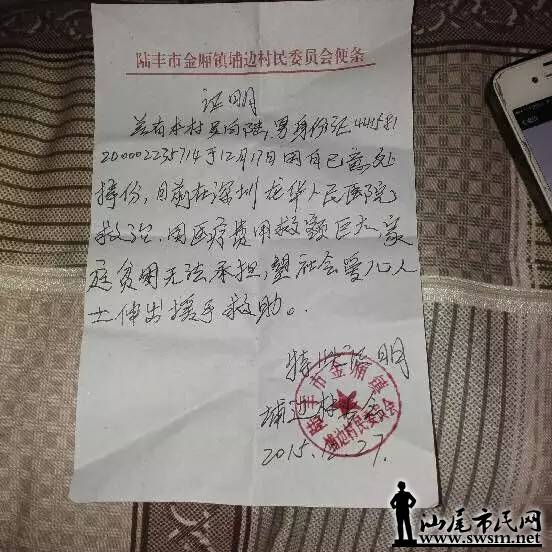 陆丰市金厢镇埔边村民委员会便条
证明
兹有本村吴向陆,男身份证444581
200002235714于12月17日因自己意处
摔伤,目前在深圳龙华人民医院
救治,因医疗费用数额巨大,家
庭贫困无法承担,望社会爱心人
士伸出援手救助。
特此证明
埔边村委会
2015.12.27.
陆丰市金厢镇
埔边村民委员会
汕尾市民网
www.swsm.net